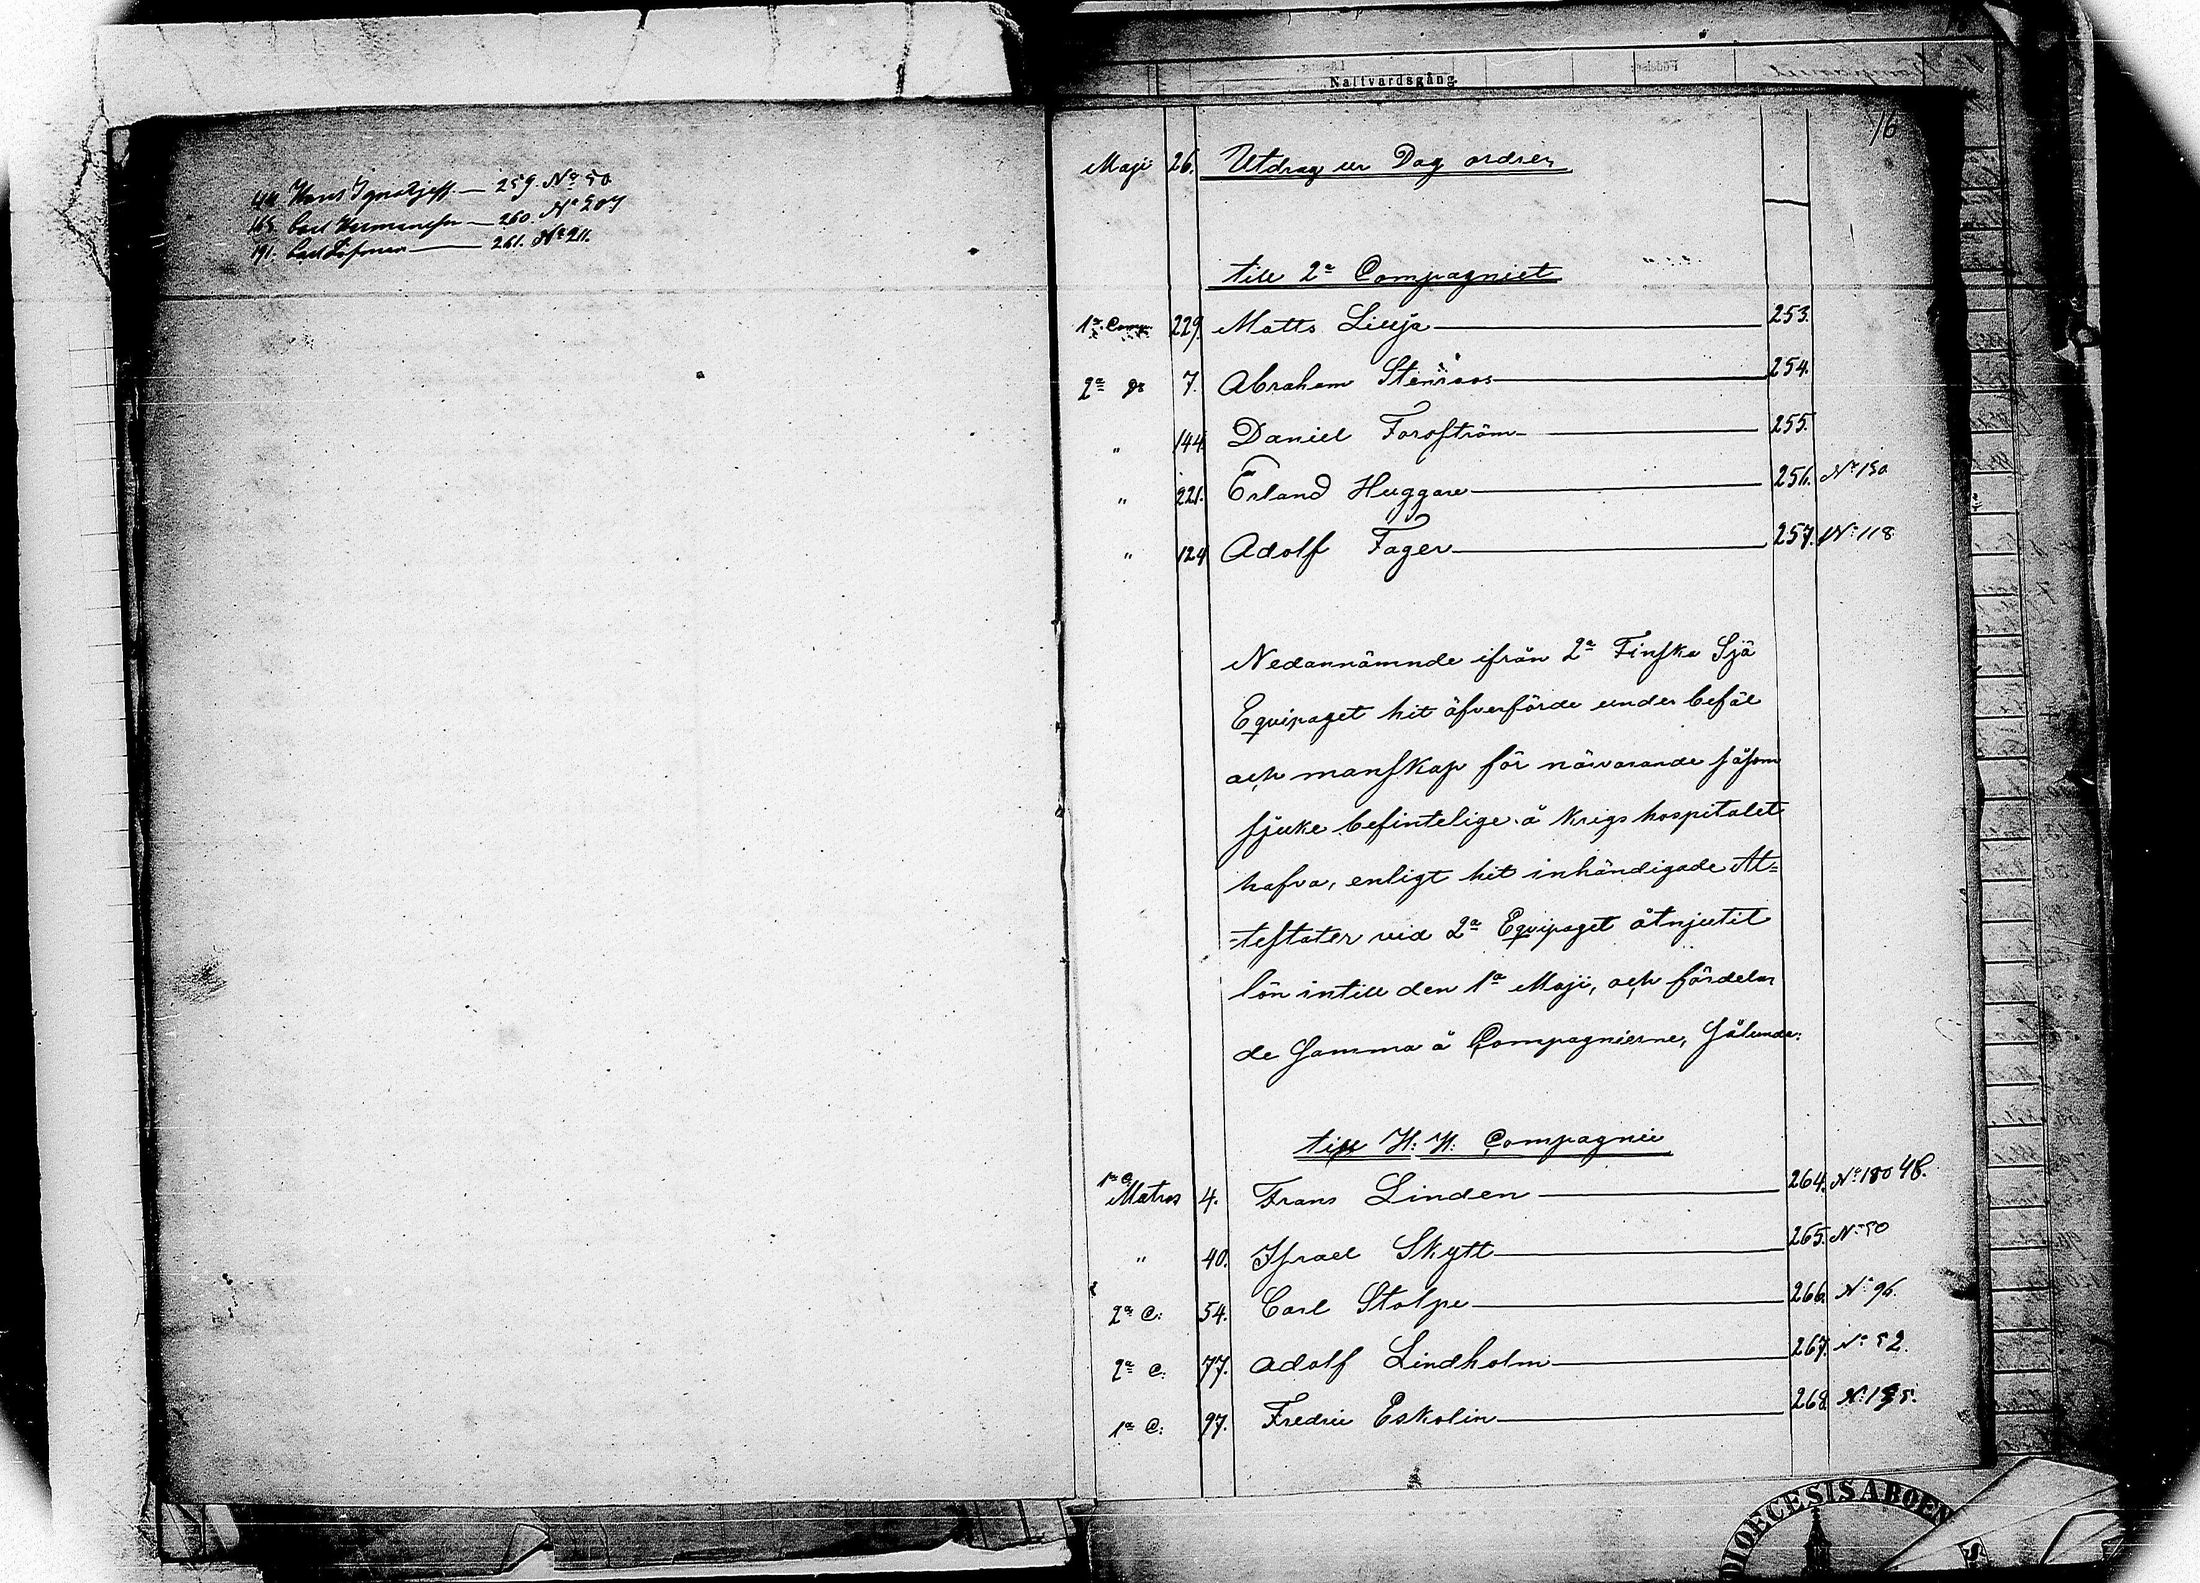 44. Hans Ignatjeff — 259. No 50
165. Carl Hermansson — 260. No 207
191. Carl — 261. No 211.
Nattvardsgång
16
Maji 26. Utdrag ur Dag ordren
till 2a Compagniet
1a Comp. 229. Matts Lillja — 253.
2a do 7. Abraham Stenroos — 254.
" 144. Daniel Forsström — 255.
" 221. Erland Huggare — 256. No 150
" 124 Adolf Fager — 257. No 118
Nedannämnde ifrån 2a Finska Sjö
Equipaget hit öfverförde under befäl
och manskap för närvarande såsom
sjuke befintelige å Krigshospitalet
hafva, enligt hit inhändigade At=
=testater vid 2a Equipaget åtnjutit
lön intill den 1a Maji, och fördelar
de samma å Compagnierne, sålunda:
till H. H. Compagnie
1a C. Matros 4. Frans Linden — 264. No 180 48.
" 40. Israel Skytt — 265. No 50
2a C. 54. Carl Stolpe — 266. No 96.
2a C. 77. Adolf Lindholm — 267. No 52.
1a C. 97. Fredric Eskolin — 268.
DIOECESIS ABOEN